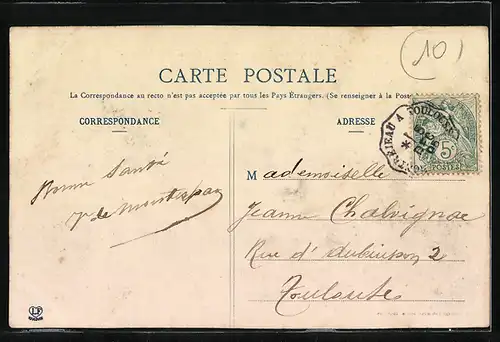 10
CARTE POSTALE
La Correspondance au recto n'est pas acceptée par tous les Pays Étrangers. (Se renseigner à la Poste
CORRESPONDANCE
ADRESSE
MONTREJEAU A TOULOUSE
5c
POSTES
Bonne Santé
de Montespan
Mademoiselle
Jeanne Chalvignac
Rue d'Aubuisson 2
Toulouse